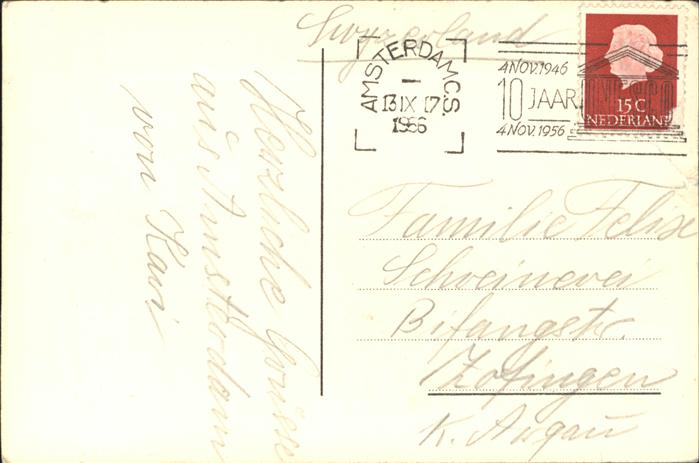 Switzerland
AMSTERDAM C.S.
13 IX 17
1956
4 NOV. 1946
10 JAAR UNESCO
4 NOV. 1956
15 C
NEDERLAND
Herzliche Grüsse
aus Amsterdam
von Kari
Familie Felix
Schreinerei
Bifangstr.
Zofingen
K. Aargau